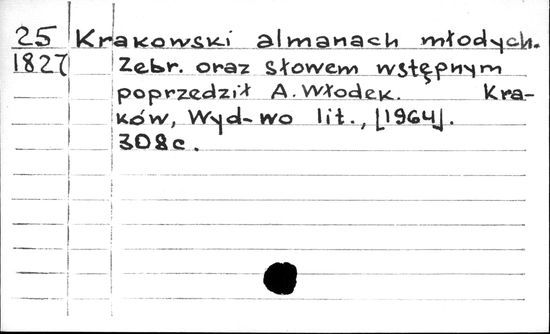 25 Krakowski almanach młodych.
1827 Zebr. oraz słowem wstępnym
poprzedził A. Włodek. Kra-
ków, Wyd-wo lit., [1964].
308c.